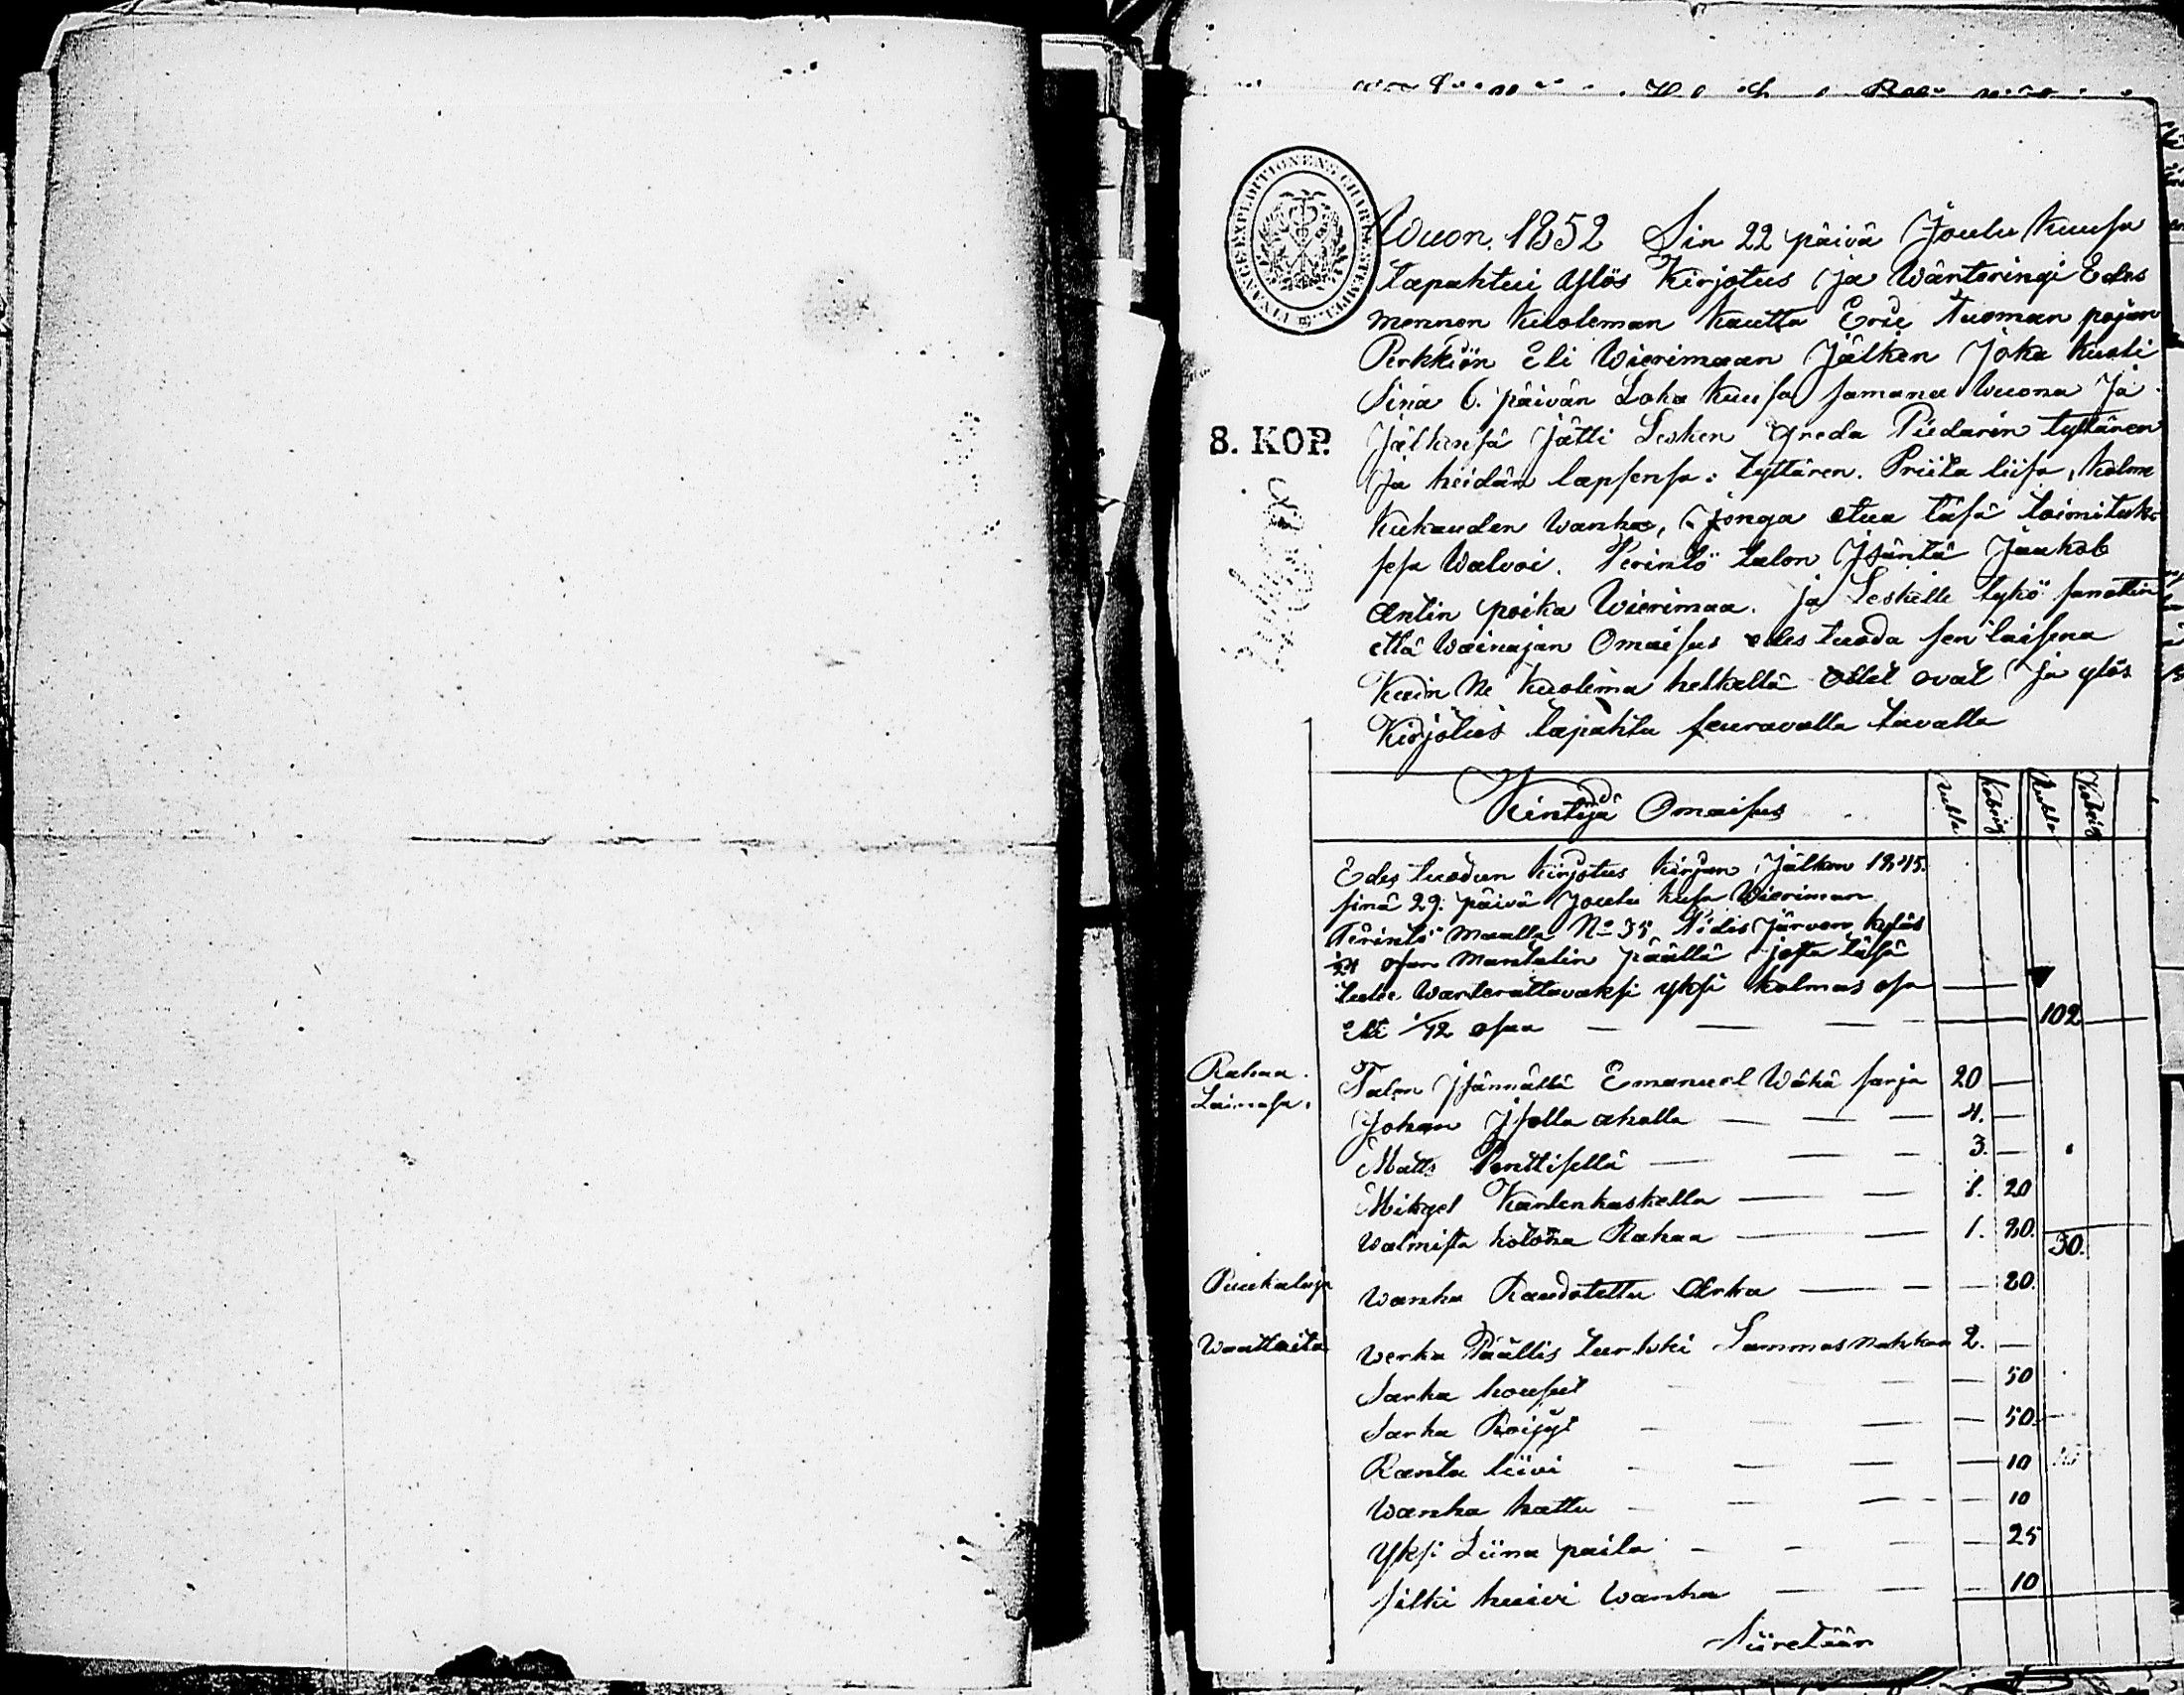 FINANCE EXPEDITIONENS CHARTÆSTEMPEL
8. KOP.
Wuon. 1852 Sin 22 päivä Joulu Kuusa
tapahtui Ylös Kirjotus ja Wärteringi Edes
mennen Kuoleman kautta Eric Tuoman pojan
Perkkiön Eli Wierimaan Jälken Joka kuoli
Sinä 6. päivän Loka kuusa samana Wuona Ja
Jälkensä Jätti Lesken Greda Piedarin tyttären
Ja heidän lapsensa: tyttären. Priita liisa, kolme
kukauden Wanha, Jonga etua täsä toimituk-
sesa Walvoi. Perintö talon Isäntä Jaakob
Antin poika Wierimaa. ja Leskelle tykö sanottin
että Wainajan Omaisus edes tuoda sen laisena
Kuin Ne Kuolema hetkellä Ollet ovat Ja ylös
Kirjotus tapahtu seuravalla tavalla
Kintiä Omaisus Rubla Kobeig Rubla Kobeig
Edes tuodun Kirjotus kirjan Jälken 1845.
sinä 29. päivä Joulu kusa Wieriman
Perintö maalla No 35 Pidis Järven kyläs
1/24 osan Mantalin päällä josta täsä
tulee Warterattavaksi yksi kolmas osa
eli 1/72 osaa 102
Rahaa Lainasa. Talon Isännällä Emanuel Wähä sarja 20
Johan Isolla aholla 4.
Matts Penttisellä 3.
Mikgel Kantenkaskella 1. 20
Walmista kotona Rahaa 1. 80. 30.
Puukaluja Wanha Raudotettu Arka 20.
Waatteita Verka Päällis turkki Lammas nahkaa 2.
Sarka housut 50
Sarka Röijyt 50
Ranta liivi 10
Wanha hattu 10
Yksi Liina paita 25
silki huivi Wanha 10
Siiretään